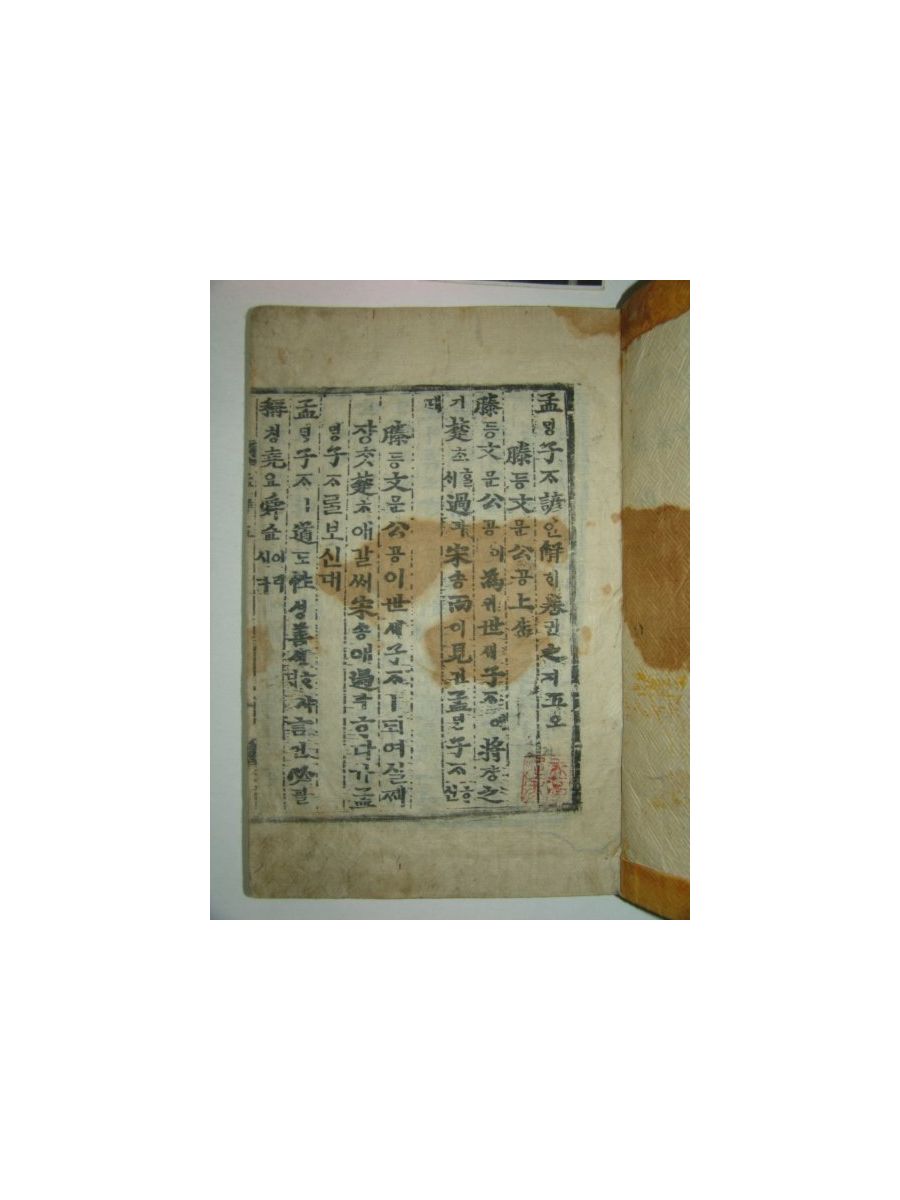 孟밍子ᄌᆞ諺언解ᄒᆡ卷권之지五오
滕등文문公공上샹
滕등文문公공이爲위世셰子ᄌᆞ애將쟝之
기楚초ᄒᆞᆯᄉᆡ過과宋송而이見견孟밍子ᄌᆞᄒᆞ신
대
滕등文문公공이世셰子ᄌᆞㅣ되여실제
쟝ᄎᆞᆺ楚초애갈ᄉᆡ宋송애過과ᄒᆞ다가孟
밍子ᄌᆞᄅᆞᆯ보신대
孟밍子ᄌᆞㅣ道도性셩善션ᄒᆞ샤ᄃᆡ言언必필
稱칭堯요舜슌이러시다